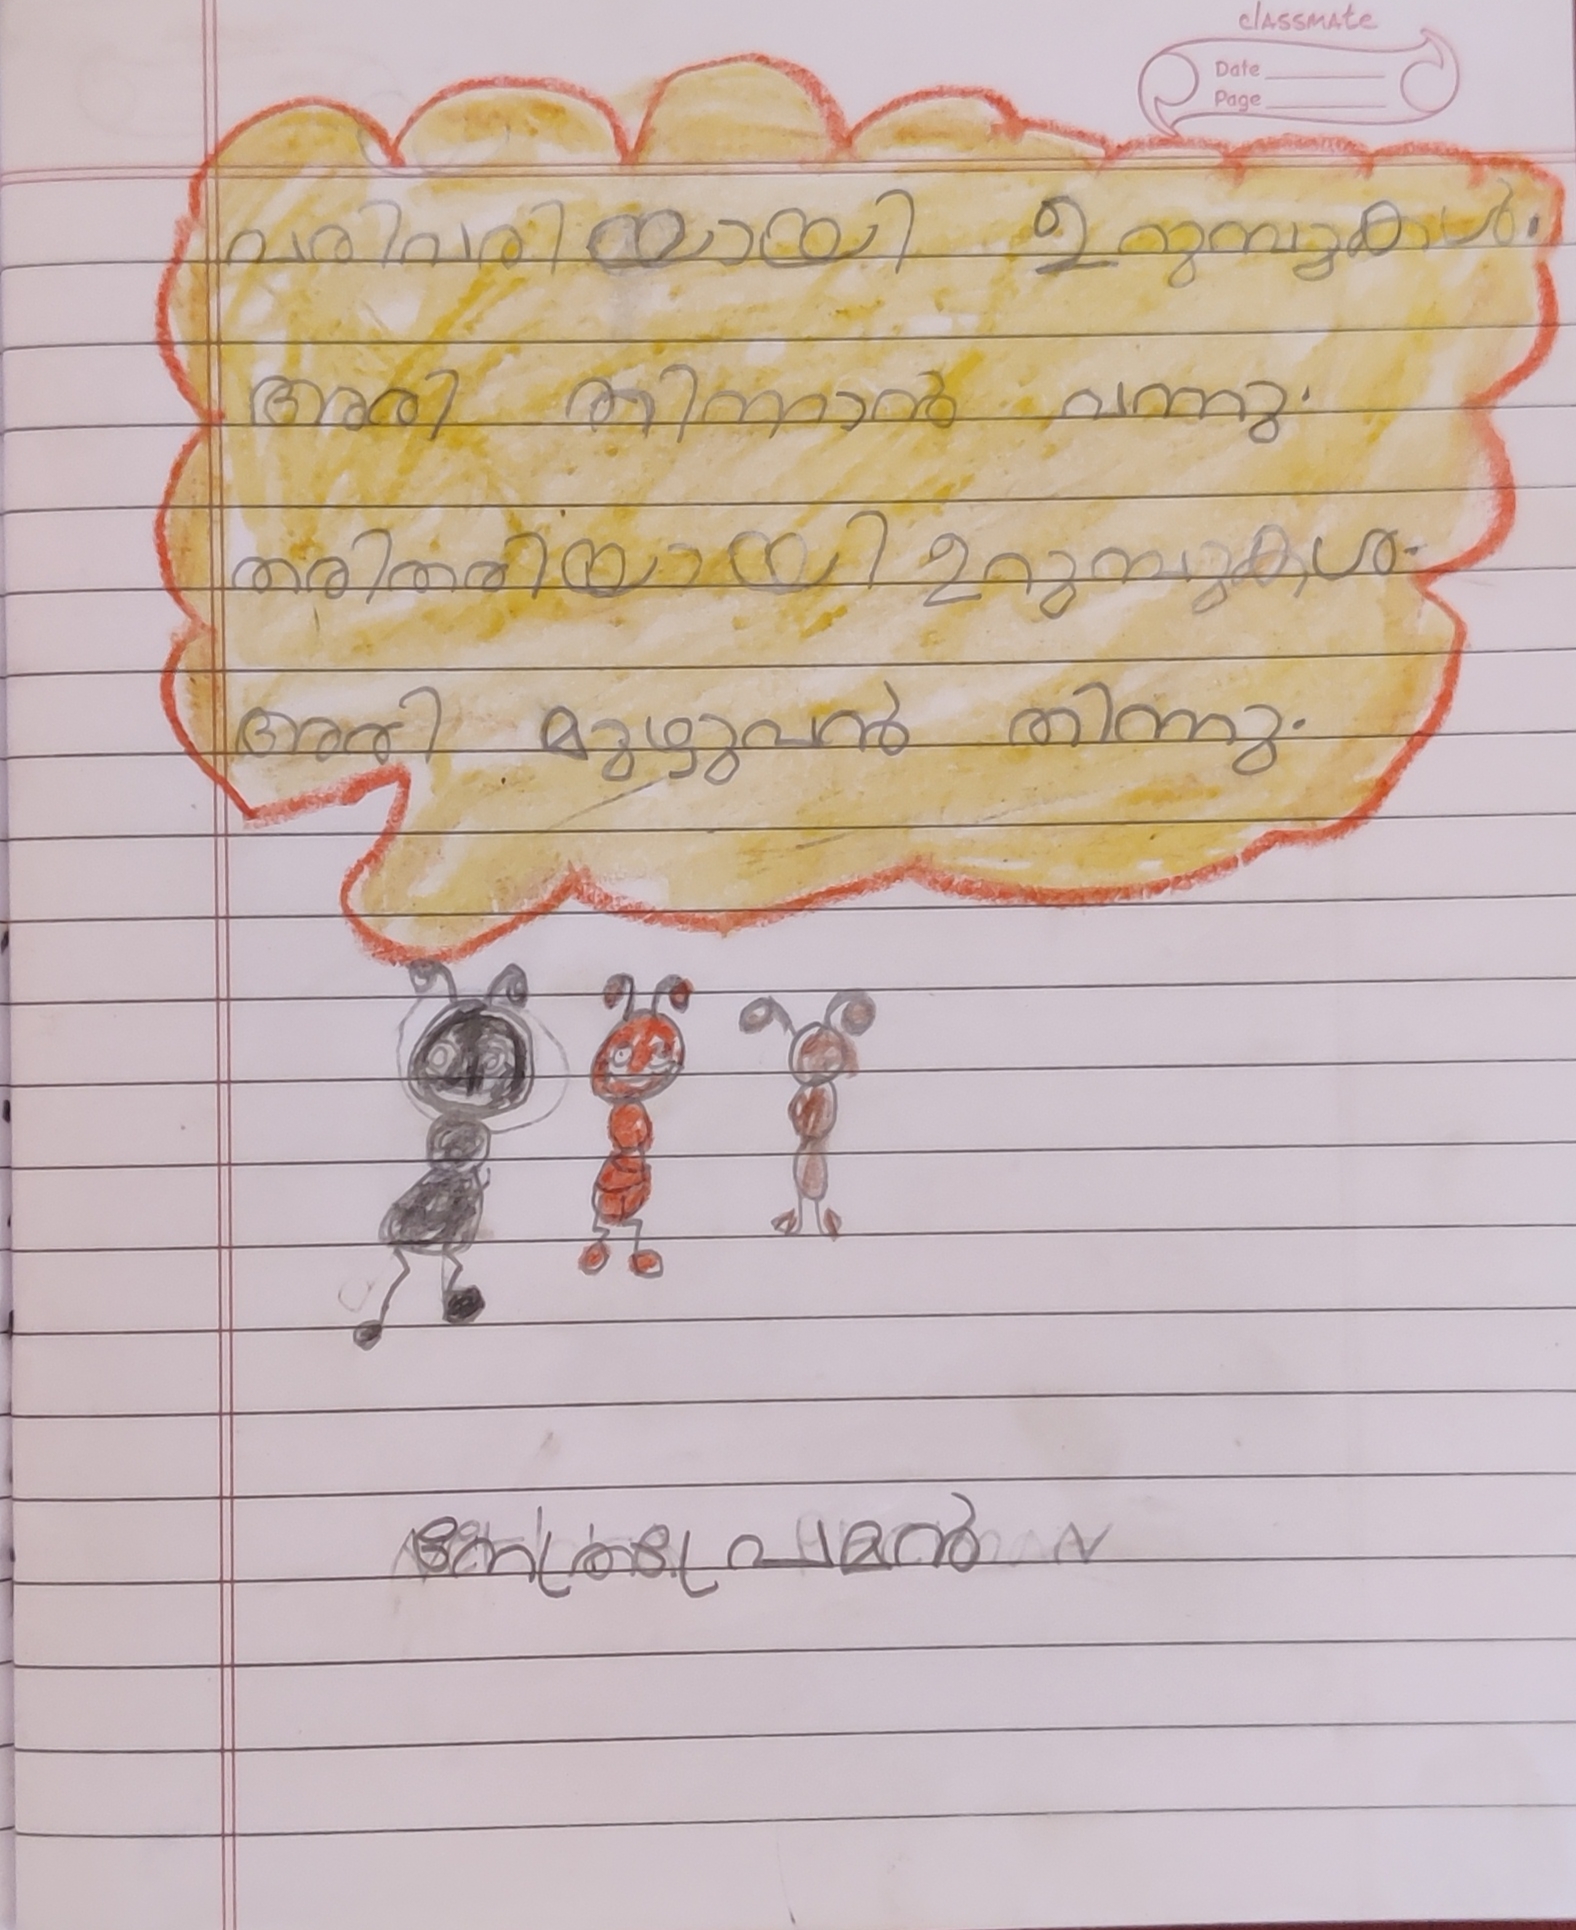 classmate
Date
Page
വരിവരിയായി ഉറുമ്പുകൾ.
അരി തിന്നാൻ വന്നു.
തരിതരിയായി ഉറുമ്പുകൾ.
അരി മുഴുവൻ തിന്നു.